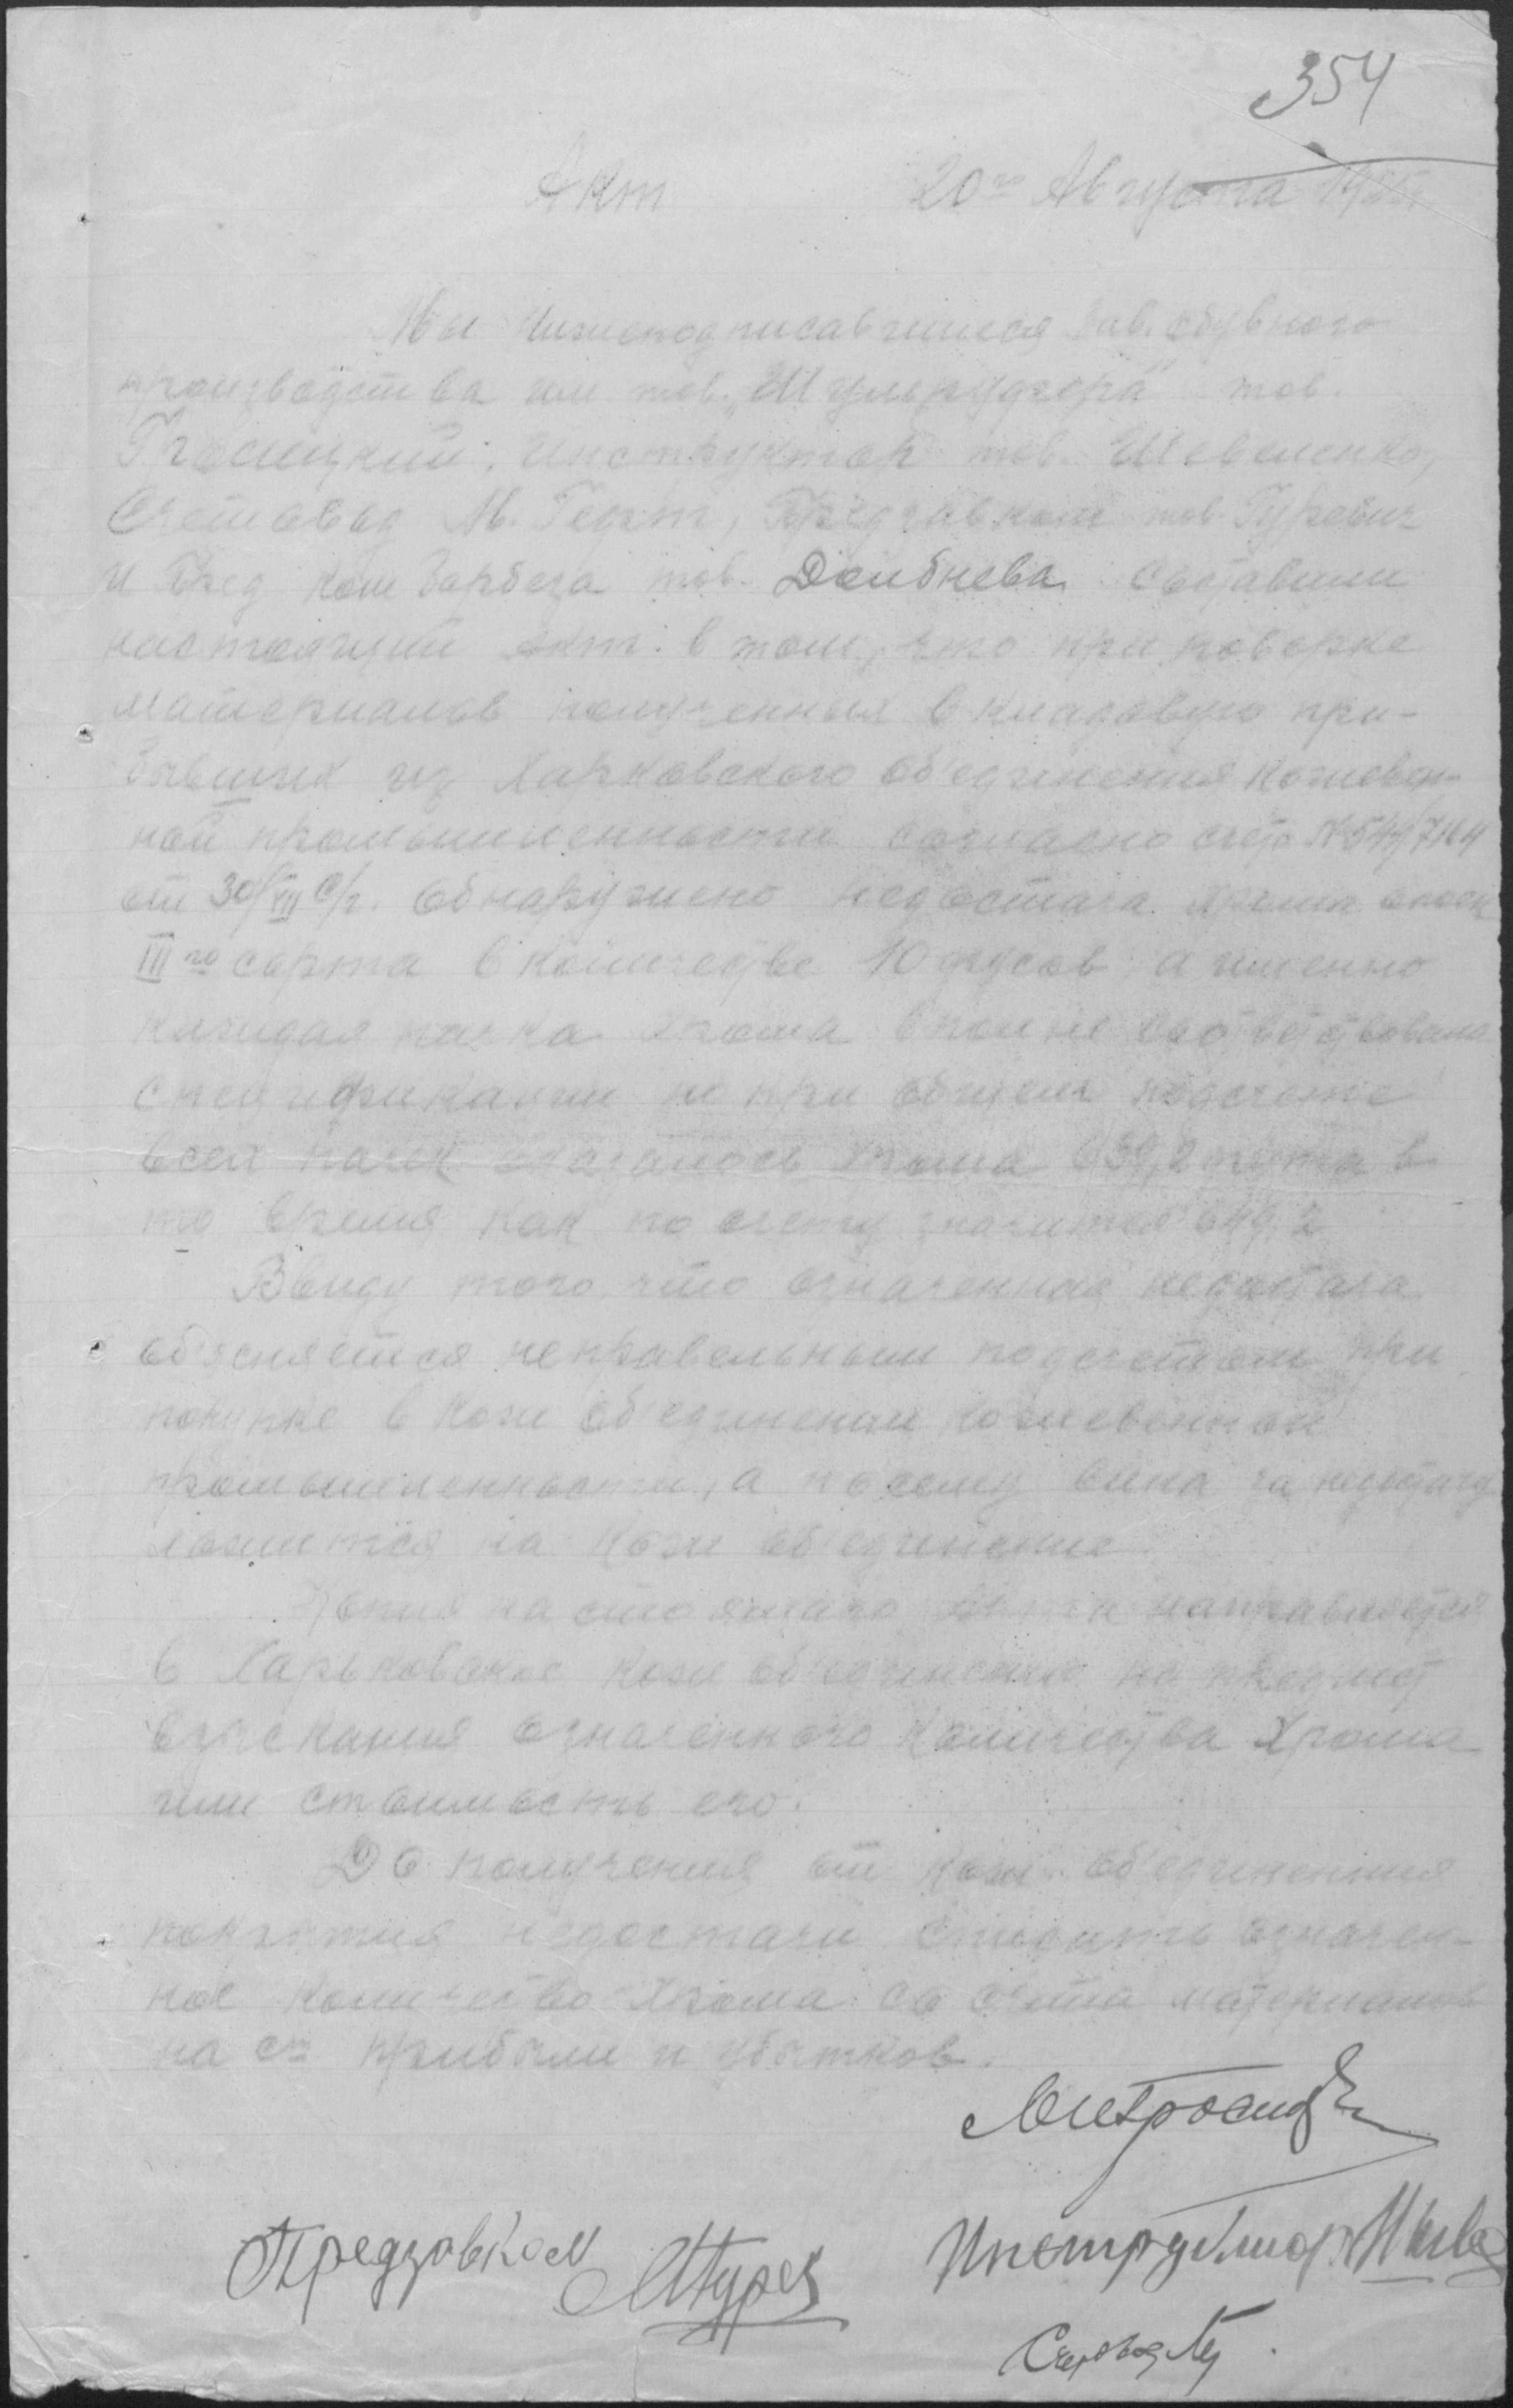 354
Акт 20го Августа 1925
Мы нижеподписавшиеся Зав. обувного
производства им тов. „Шулерудзера" тов.
инструктор тов. Шевеленко,
Счетовод М. Герт, Предзавком тов. Гуревич
и Пред ком тов. Долбнева составили
настоящий акт в том, что при поверке
материалов полученных в кладовую при-
бывших из Харковского об'единения кожевен-
ной промышленности согласно счета № 541/7164
от 30/VII с/г. обнаружено недостача хрома опоек
III го сорта в количестве 10 фусов, а именно
каждая пачка хрома вполне соответствовала
спецификации но при общем подсчете
всех пачек оказалось хрома 639,2 фута в
то время как по счету значится 649,2
Ввиду того что означенная недостача
об'ясняется неправельным подсчетом при
покупке в Кож об'единении кожевенной
промышленности, а посему вина за недостачу
ложится на Кож об'единение
Копия настоящаго акта направляется
в Харьковское кож об'единение на предмет
взыскания означенного количества Хрома
или стоимость его.
До получения от кож. об'единения
покрытия недостачи списать означен-
ное количество Хрома со счета материалов
на сч прибыли и убытков.
Предзавком МГурев Инструктор Шеве
Счетовод Ге